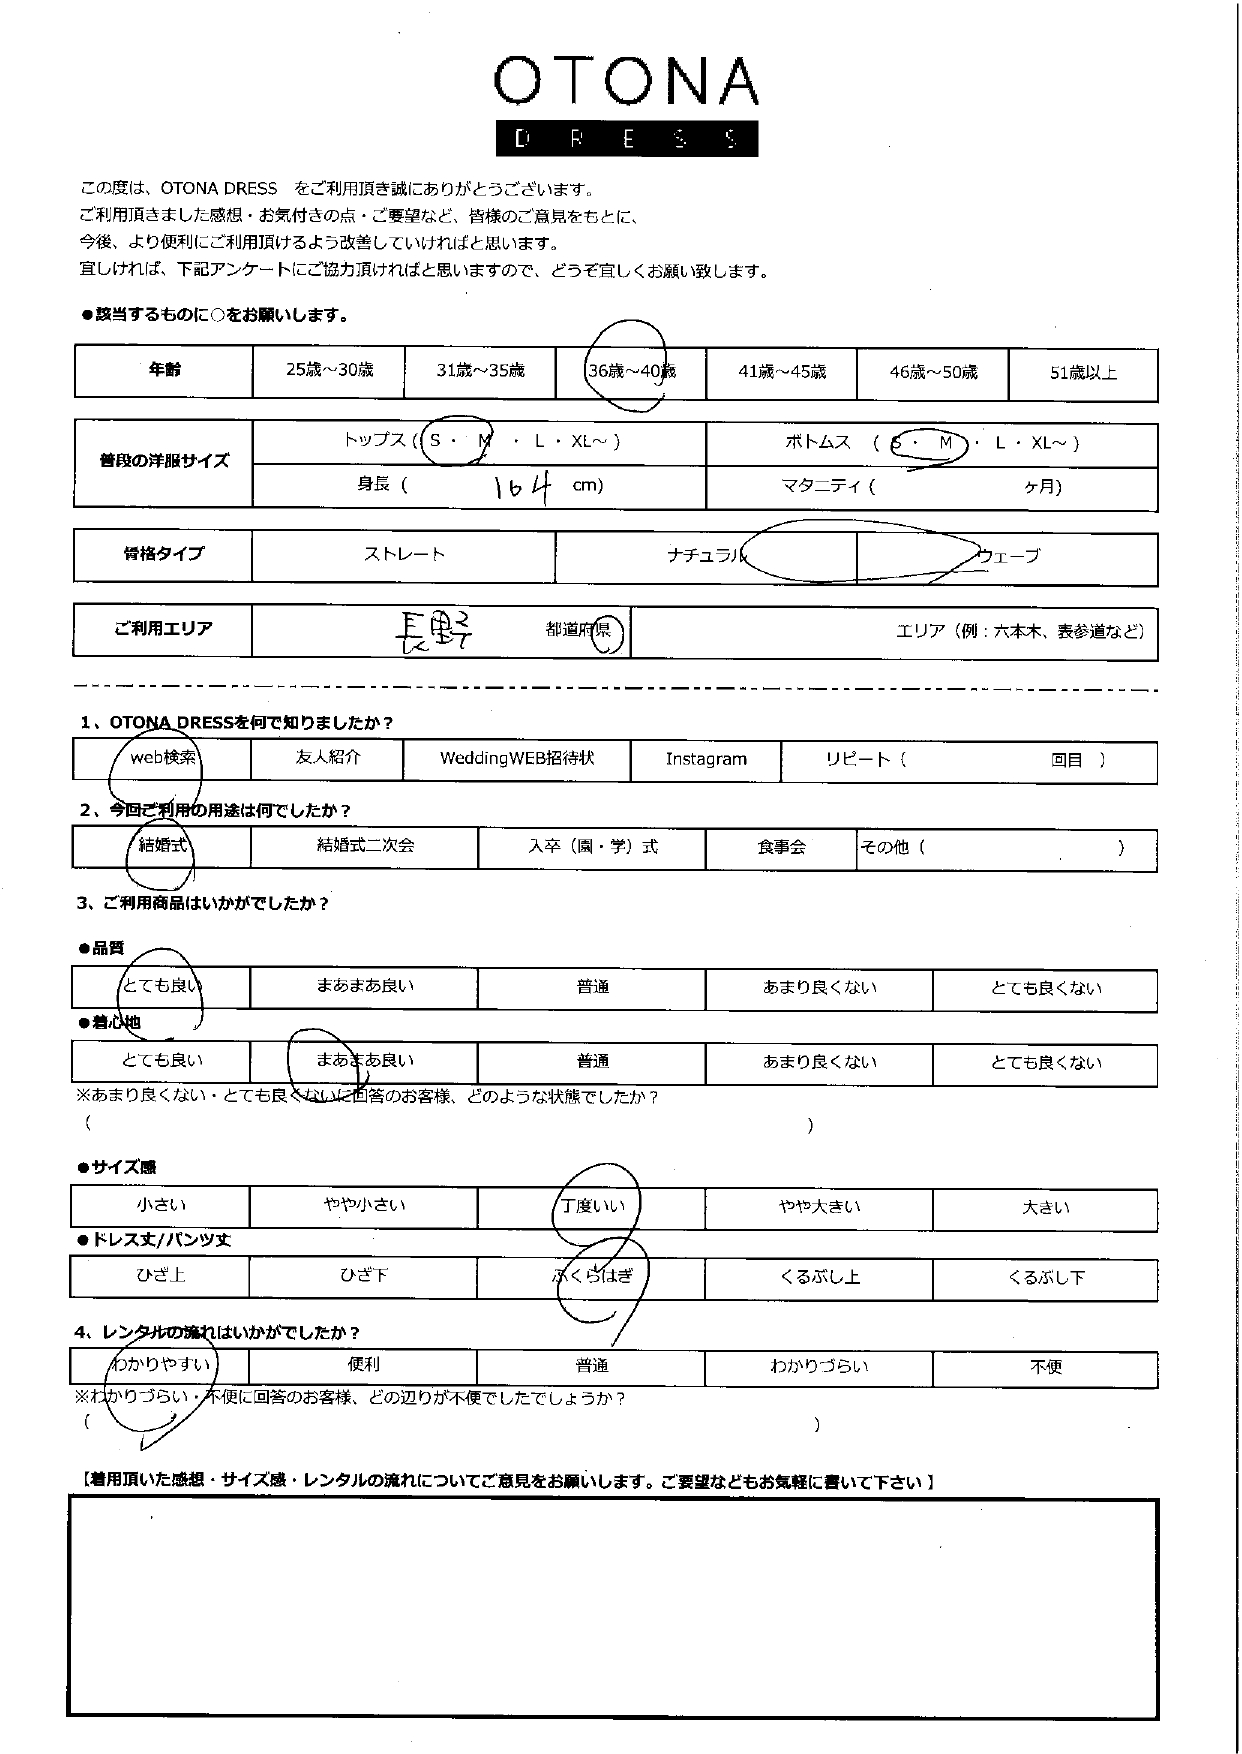 OTONA
DRESS
この度は、OTONA DRESS　をご利用頂き誠にありがとうございます。
ご利用頂きました感想・お気付きの点・ご要望など、皆様のご意見をもとに、
今後、より便利にご利用頂けるよう改善していければと思います。
宜しければ、下記アンケートにご協力頂ければと思いますので、どうぞ宜しくお願い致します。
●該当するものに○をお願いします。
年齢 25歳～30歳 31歳～35歳 36歳～40歳 41歳～45歳 46歳～50歳 51歳以上
普段の洋服サイズ トップス ( S ・ M ・ L ・ XL～ ) ボトムス ( S ・ M ・ L ・ XL～ )
身長 ( 164 cm) マタニティ ( ヶ月)
骨格タイプ ストレート ナチュラル ウェーブ
ご利用エリア 長野 都道府県 エリア（例：六本木、表参道など）
1、OTONA DRESSを何で知りましたか？
web検索 友人紹介 WeddingWEB招待状 Instagram リピート（ 回目 ）
2、今回ご利用の用途は何でしたか？
結婚式 結婚式二次会 入卒（園・学）式 食事会 その他（ ）
3、ご利用商品はいかがでしたか？
●品質
とても良い まあまあ良い 普通 あまり良くない とても良くない
●着心地
とても良い まあまあ良い 普通 あまり良くない とても良くない
※あまり良くない・とても良くないに回答のお客様、どのような状態でしたか？
（ ）
●サイズ感
小さい やや小さい 丁度いい やや大きい 大きい
●ドレス丈/パンツ丈
ひざ上 ひざ下 ふくらはぎ くるぶし上 くるぶし下
4、レンタルの流れはいかがでしたか？
わかりやすい 便利 普通 わかりづらい 不便
※わかりづらい・不便に回答のお客様、どの辺りが不便でしたでしょうか？
（ ）
【着用頂いた感想・サイズ感・レンタルの流れについてご意見をお願いします。ご要望などもお気軽に書いて下さい 】